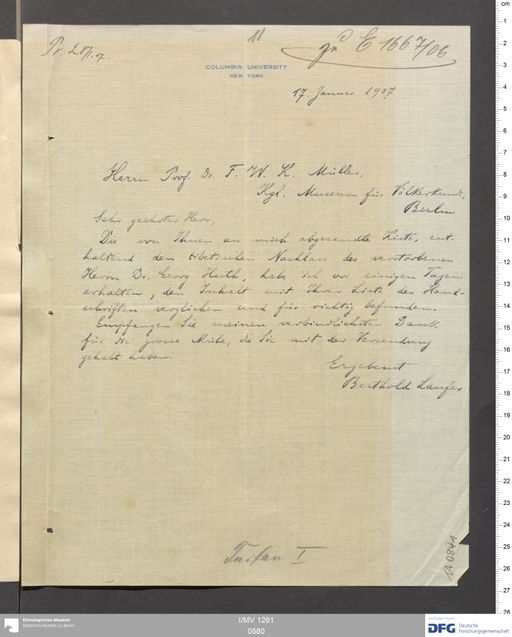 11
gr E 1667/06
COLUMBIA UNIVERSITY
NEW YORK.
17. Januar 1907
Herrn Prof. Dr. F. W. K. Müller,
Kgl. Museum für Völkerkunde,
Berlin
Sehr geehrter Herr,
Die von Ihnen an mich abgesandte Kiste, ent-
haltend den tibetischen Nachlass des verstorbenen
Herrn Dr. Georg Huth, habe ich vor einigen Tagen
erhalten, den Inhalt mit Ihrer Liste der Hand-
schriften verglichen und für richtig befunden.
Empfangen Sie meinen verbindlichsten Dank
für die grosse Mühe, die Sie mit der Versendung
gehabt haben.
Ergebenst
Berthold Laufer
Turfan I
1A 0841
Ethnologisches Museum
Staatliche Museen zu Berlin
I/MV 1261
0580
DFG Deutsche
Forschungsgemeinschaft
cm
1
2
3
4
5
6
7
8
9
10
11
12
13
14
15
16
17
18
19
20
21
22
23
24
25
26
27
28